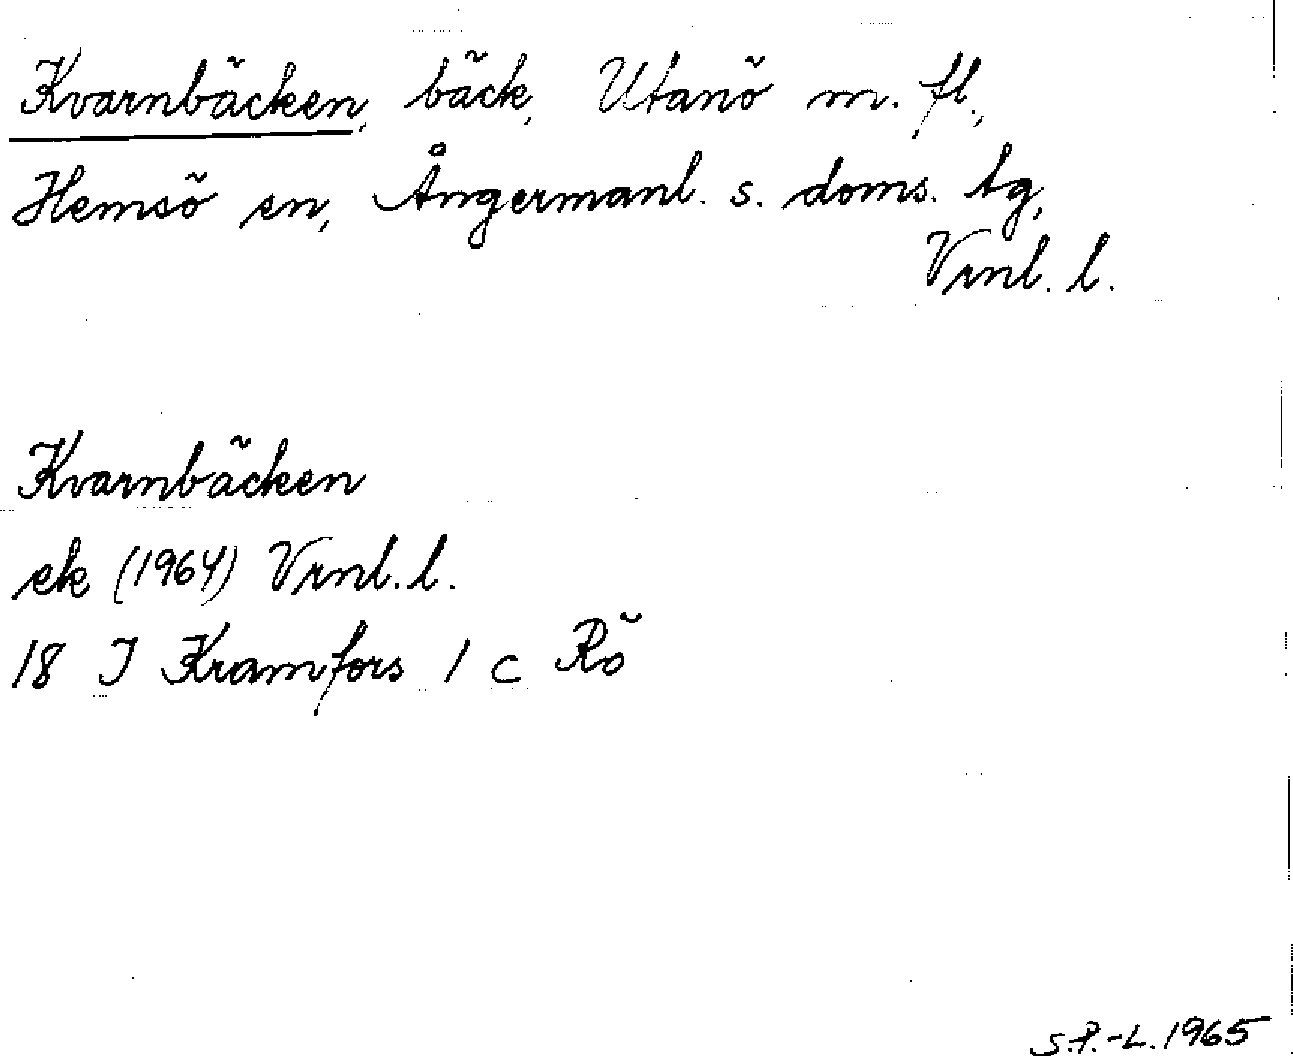 Kvarnbäcken, bäck, Utanö m. fl.,
Hemsö sn, Ångermanl. s. doms. tg,
Vrnl. l.
Kvarnbäcken
ek (1964) Vrnl. l.
18 I Kramfors 1 c Rö
S.P.-L. 1965